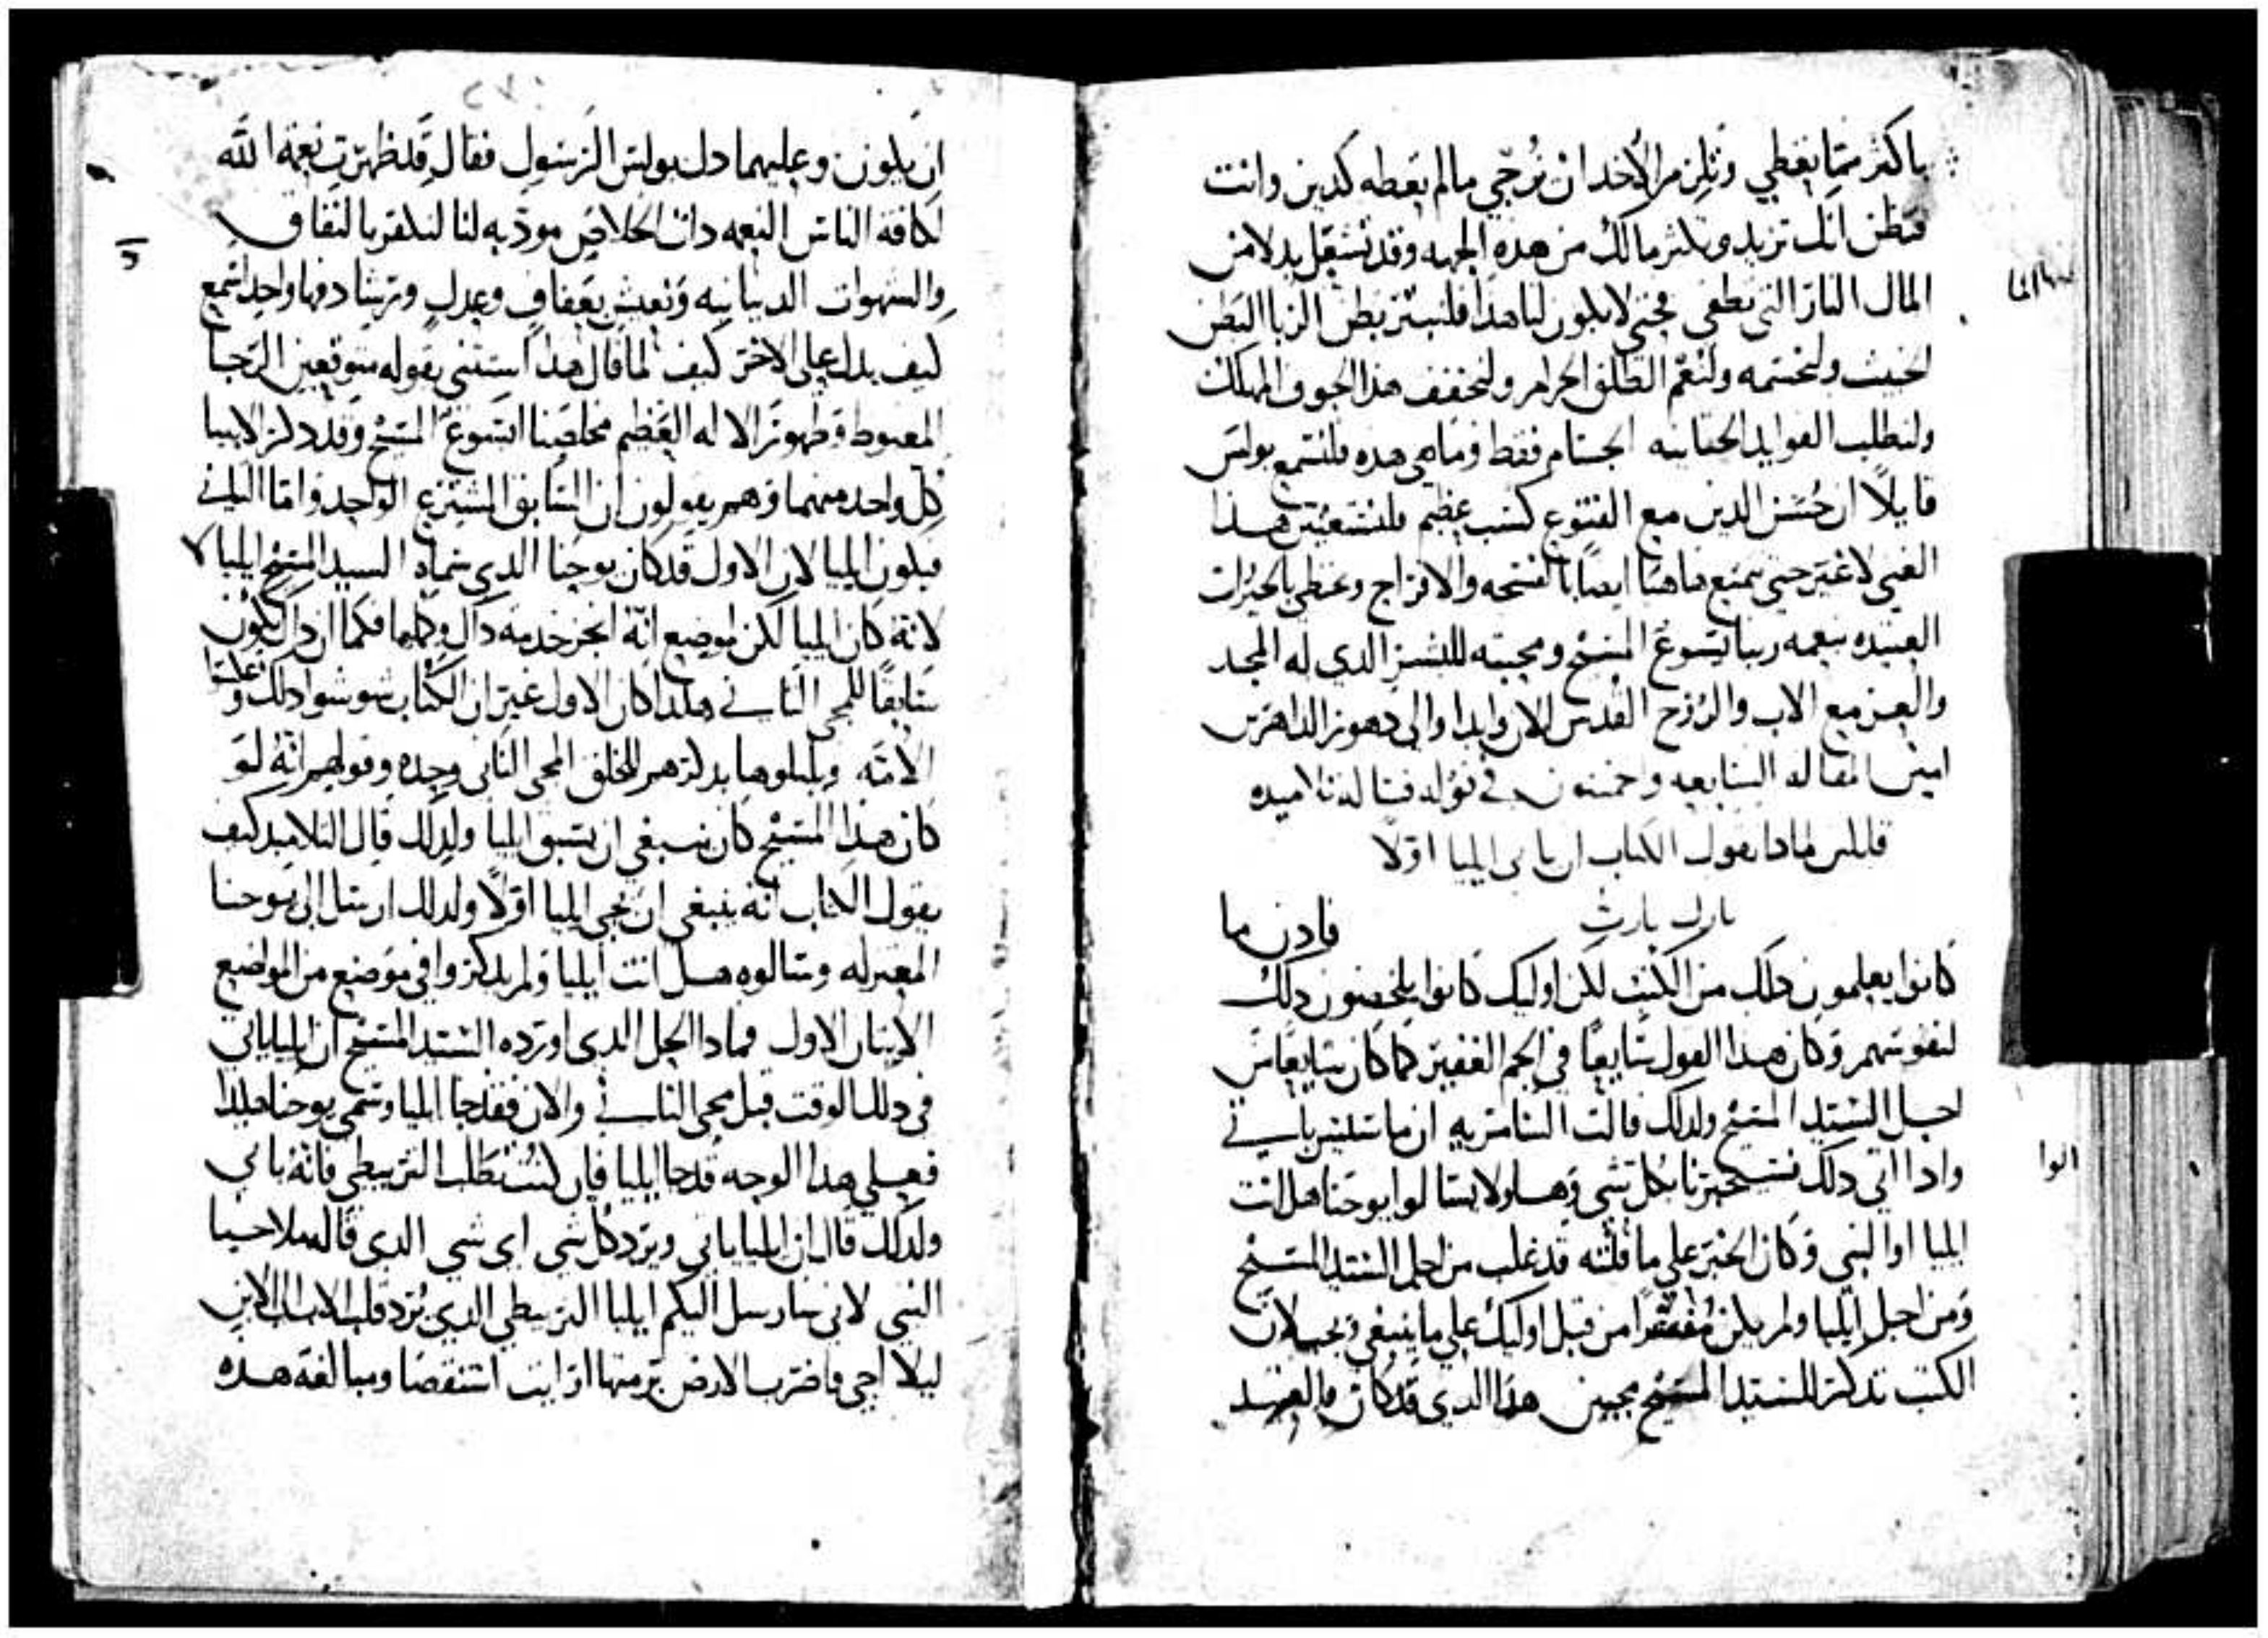 باكثر مما يعطي وتلزم الأخد ان يُرجّي مالم يعطه كدين وانت
فتظن انك تزيد وتكثر مالك من هده الجهه وقد تشعل بدلا من
المال النار التي تطفى فحتى لايكون لنا هدا فلنبتر بطن الربا البطن
الخبيث ولنختمه ولنعقم الطلق الحرام ولنجفف هذا الجوف المهلك
ولنطلب الفوايد الحقانيه الجسام فقط وما هي هده فلنسمع بولس
قايلاً ان حُسن الدين مع القنوع كسب عظيم فلنستغنين هذا
الغنى لاغير حتى نتمتع هاهنا ايضاً بالفسحه والافراج ونحظى بالخيرات
العتيده بنعمه ربنا يسوع المسيح ومحبته للبشر الدي له المجد
والعز مع الاب والروح القدس الان وابدا والى دهور الداهرين
امين المقاله السابعه وخمسون في قوله فساله تلاميده
قايلين لمادا يقول الكتاب ان ياتي ايليا اولاً
بارك يارب
فادن ما
كانوا يعلمون دلك من الكتب لكن اوليك كانوا يلخصون دلك
لنفوسهم وكان هدا القول شايعاً في الجم الغفير كما كان شايعاً من
اجل السيد المسيح ولدلك قالت السامريه ان ماسيس ياتي
وادا اتى دلك فسيخبرنا بكل شي وهاولا يسالوا يوحنا هل انت
ايليا او النبي وكان الخبر على ما قلته قد غلب من اجل السيد المسيح
ومن اجل ايليا ولم يكن مُفسّرا من قبل اوليك على ما ينبغي ويجب لان
الكتب تذكر للسيد المسيح مجيين هذا الدي قد كان والعتيد
ان يكون وعليهما دل بولس الرسول فقال قد ظهرت نعمة الله
لكافه الناس النعمه دات الخلاص مودبه لنا لنكفر بالنفاق
والشهوات الدنيانيه ونعيش بعفاف وعدل وتريثا دونها واحد اسمع
كيف يدل على الاخر كيف لما قال هدا استثنى بقوله متوقعين الرجا
المغبوط وظهور الاله العظيم مخلصنا ايسوع المسيح وقد دكر الانبيا
كل واحد منهما وهم يقولون ان السابق المسترع الواحد واما الثاني
فيكون ايليا لان الاول قد كان يوحنا الدي سماه السيد المسيح ايليا لا
لانه كان ايليا لكن لموضع انه انجز خدمه داك وكما ان داك يكون
سابقاً للمجي الثاني هكدا كان الاول غير ان الكتاب شوشوا دلك واعلنا
الامه ويبلبلوها بدكرهم للخلق المجي الثاني وحده وقولهم انه لو
كان هدا المسيح كان ينبغي ان يسبق ايليا ولدلك قال التلاميد كيف
يقول الكتاب انه ينبغي ان يجي ايليا اولاً ولدلك ارسل الى يوحنا
المعتزله وسالوه هل انت ايليا ولم يدكروا في موضع من المواضع
الاتيان الاول فمادا الحل الدي اورده السيد المسيح ان ايليا ياتي
في دلك الوقت قبل مجي الثاني والان فقد جا ايليا وسمى يوحنا هكدا
فعلى هدا الوجه قد جا ايليا فان كنت تطلب التزبيطي فانه ياتي
ولدلك قال ان ايليا ياتي ويرد كل شي اي شي الدي قاله ملاخيا
النبي لاني سارسل اليكم ايليا التزبيطي الدي يُرد قلب الاب الى الابن
ليلا اجي فاضرب الارض برمتها ارايت استقصا ومبالغه هده